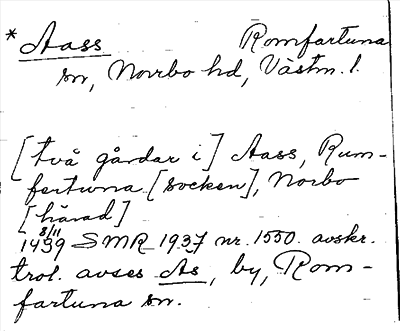 * Aass Romfartuna
sn, Norrbo hd, Västm. l.
[två gårdar i] Aass, Rum-
fertuna [socken], Norbo
[härad]
8/11
1439 SMR 1937 nr. 1550. avskr.
trol. avses As, by, Rom-
fartuna sn.